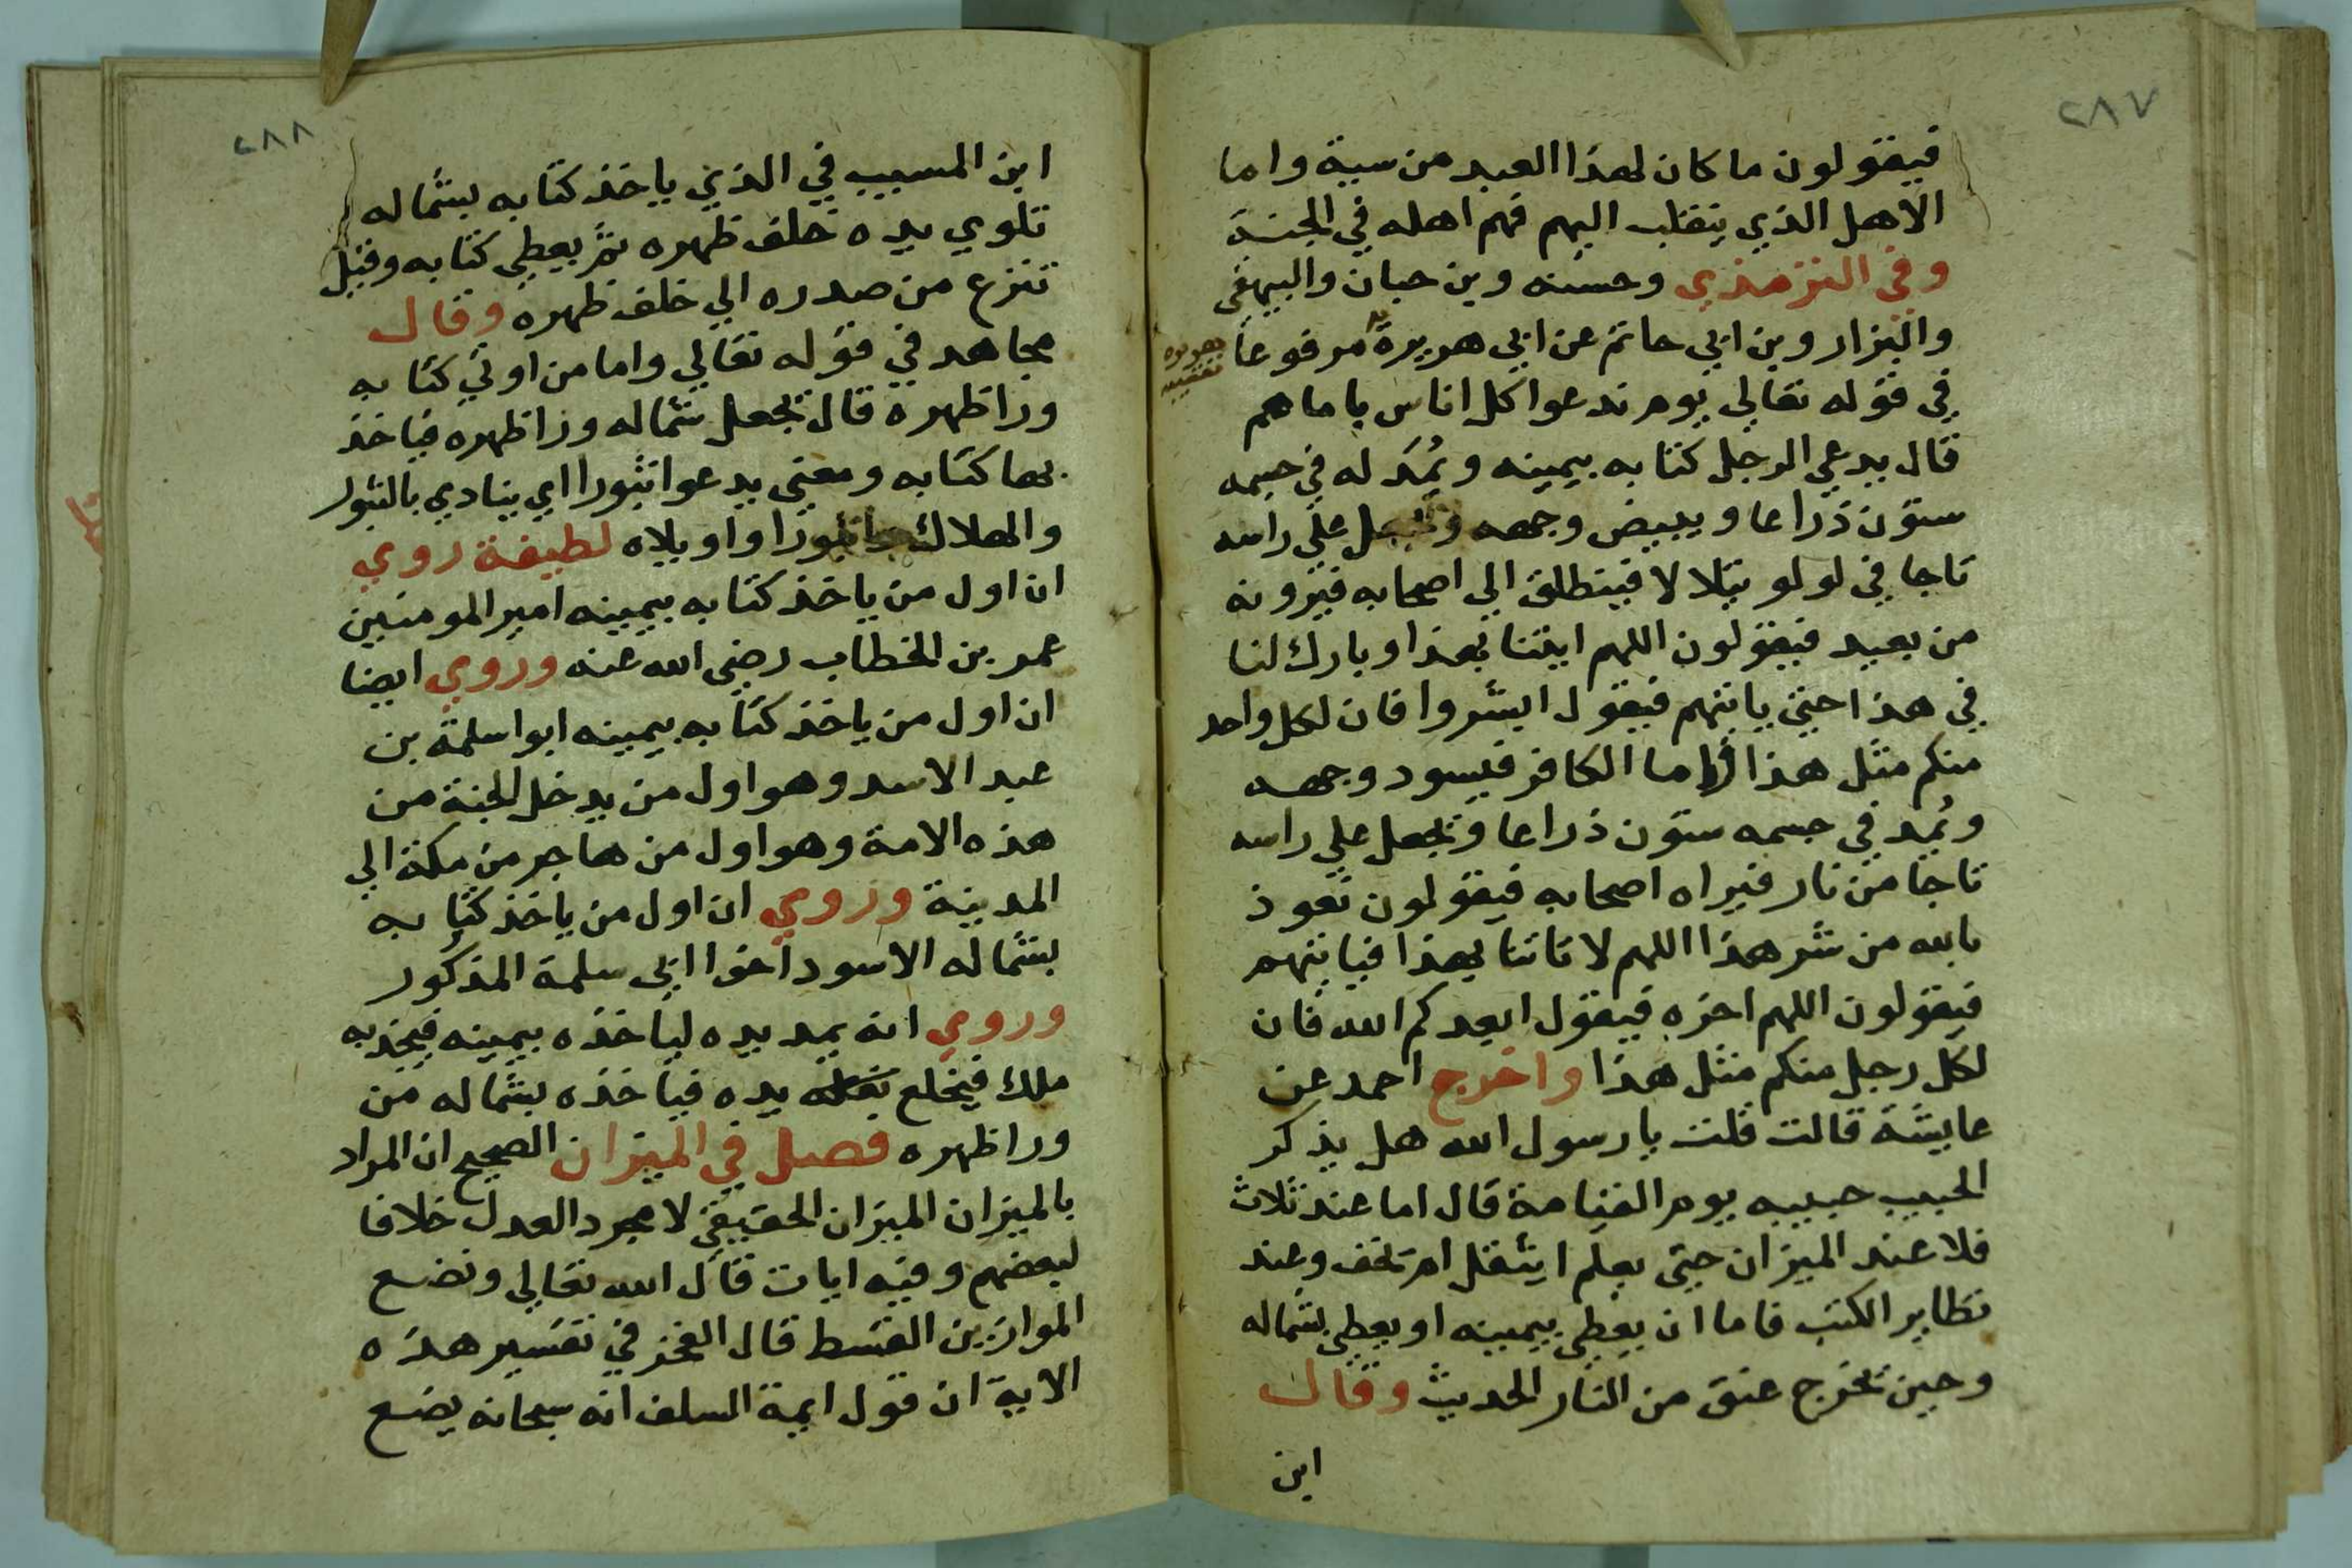 ٢٨٧
فيقولون ما كان لهذا العبد من سية واما
الاهل الذي ينقلب اليهم فهم اهله في الجنة
وفي الترمذي وحسنه وبن حبان والبيهقي
والبزار وبن ابي حاتم عن ابي هريرة مرفوعا
في قوله تعالي يوم ندعوا كل اناس بامامهم
قال يدعي الرجل كتابه بيمينه ويمد له في جسمه
ستون ذراعا ويبيض وجهه ويجعل علي راسه
تاجا في لولو يتلالا فينطلق الي اصحابه فيرونه
من بعيد فيقولون اللهم ايتنا بهذا وبارك لنا
في هذا حتي ياتيهم فيقول ابشروا فان لكل واحد
منكم مثل هذا واما الكافر فيسود وجهه
ويُمد في جسمه ستون ذراعا ويجعل علي راسه
تاجا من نار فيراه اصحابه فيقولون نعوذ
بالله من شر هذا اللهم لا تاتنا بهذا فياتيهم
فيقولون اللهم اخزه فيقول ابعدكم الله فان
لكل رجل منكم مثل هذا واخرج احمد عن
عايشة قالت قلت يا رسول الله هل يذكر
الحبيب حبيبه يوم القيامة قال اما عند ثلاث
فلا عند الميزان حتي يعلم ايثقل ام تخف وعند
تطاير الكتب فاما ان يعطي بيمينه او يعطي بشماله
وحين تخرج عنق من النار الحديث وقال
ابن
٢٨٨
ابن المسيب في الذي ياخذ كتابه بشماله
تلوي يده خلف ظهره ثم يعطي كتابه وقيل
تنزع من صدره الي خلف ظهره وقال
مجاهد في قوله تعالي واما من اوتي كتابه
ورا ظهره قال يجعل شماله ورا ظهره فياخذ
بها كتابه ومعني يدعوا ثبورا اي ينادي بالثبور
والهلاك واثبورا واويلاه لطيفة روي
ان اول من ياخذ كتابه بيمينه امير المومنين
عمر بن الخطاب رضي الله عنه وروي ايضا
ان اول من ياخذ كتابه بيمينه ابوا سلمة بن
عبد الاسد وهو اول من يدخل الجنة من
هذه الامة وهو اول من هاجر من مكة الي
المدينة وروي ان اول من ياخذ كتابه
بشماله الاسود اخوا ابي سلمة المذكور
وروي انه يمد يده لياخذه بيمينه فيجذبه
ملك فيخلع يده فياخذه بشماله من
ورا ظهره فصل في الميزان الصحيح ان المراد
بالميزان الميزان الحقيقي لا مجرد العدل خلافا
لبعضهم وفيه ايات قال الله تعالي ونضع
الموازين القسط قال الفخر في تفسير هذه
الاية ان قول ايمة السلف انه سبحانه يضع